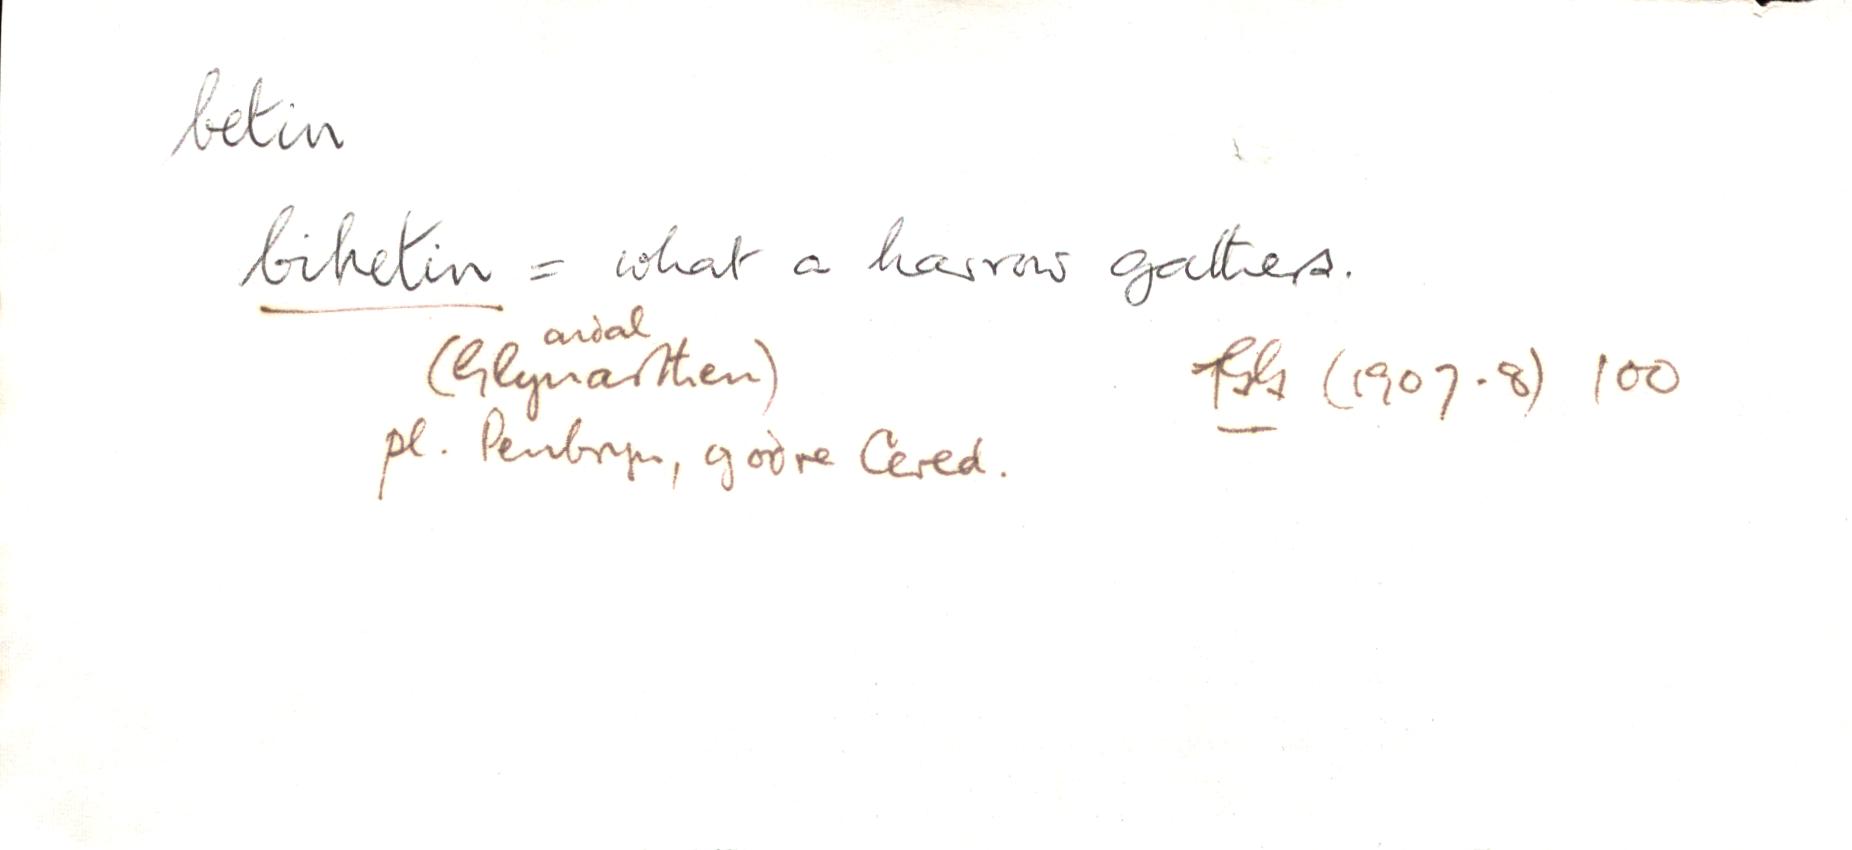 betin
bihetin = what a harrow gathers.
ardal
(Glynarthen)
TGG (1907-8) 100
pl. Penbryn, godre Cered.